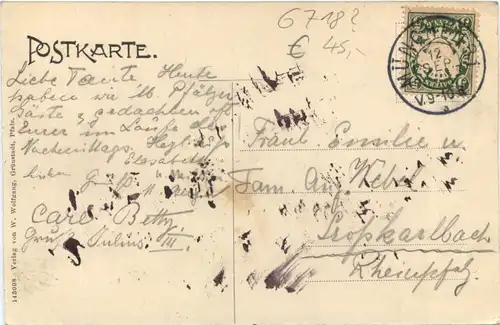 6718?
€ 45,-
POSTKARTE.
Liebe Tante Heute
haben wir 26 Pfälzer
Gäste & gedachten oft
Eurer im Laufe des
Nachmittags. Herzlichst
Elisabeth
Gruß
Carl Betty
Gruß Julius
Fräul. Emilie u.
Fam. Aug. Kebel
Großkarlbach
Rheinpfalz.
143008 - Verlag von W. Wolfgang, Grünstadt, Pfalz.
V. 9-10